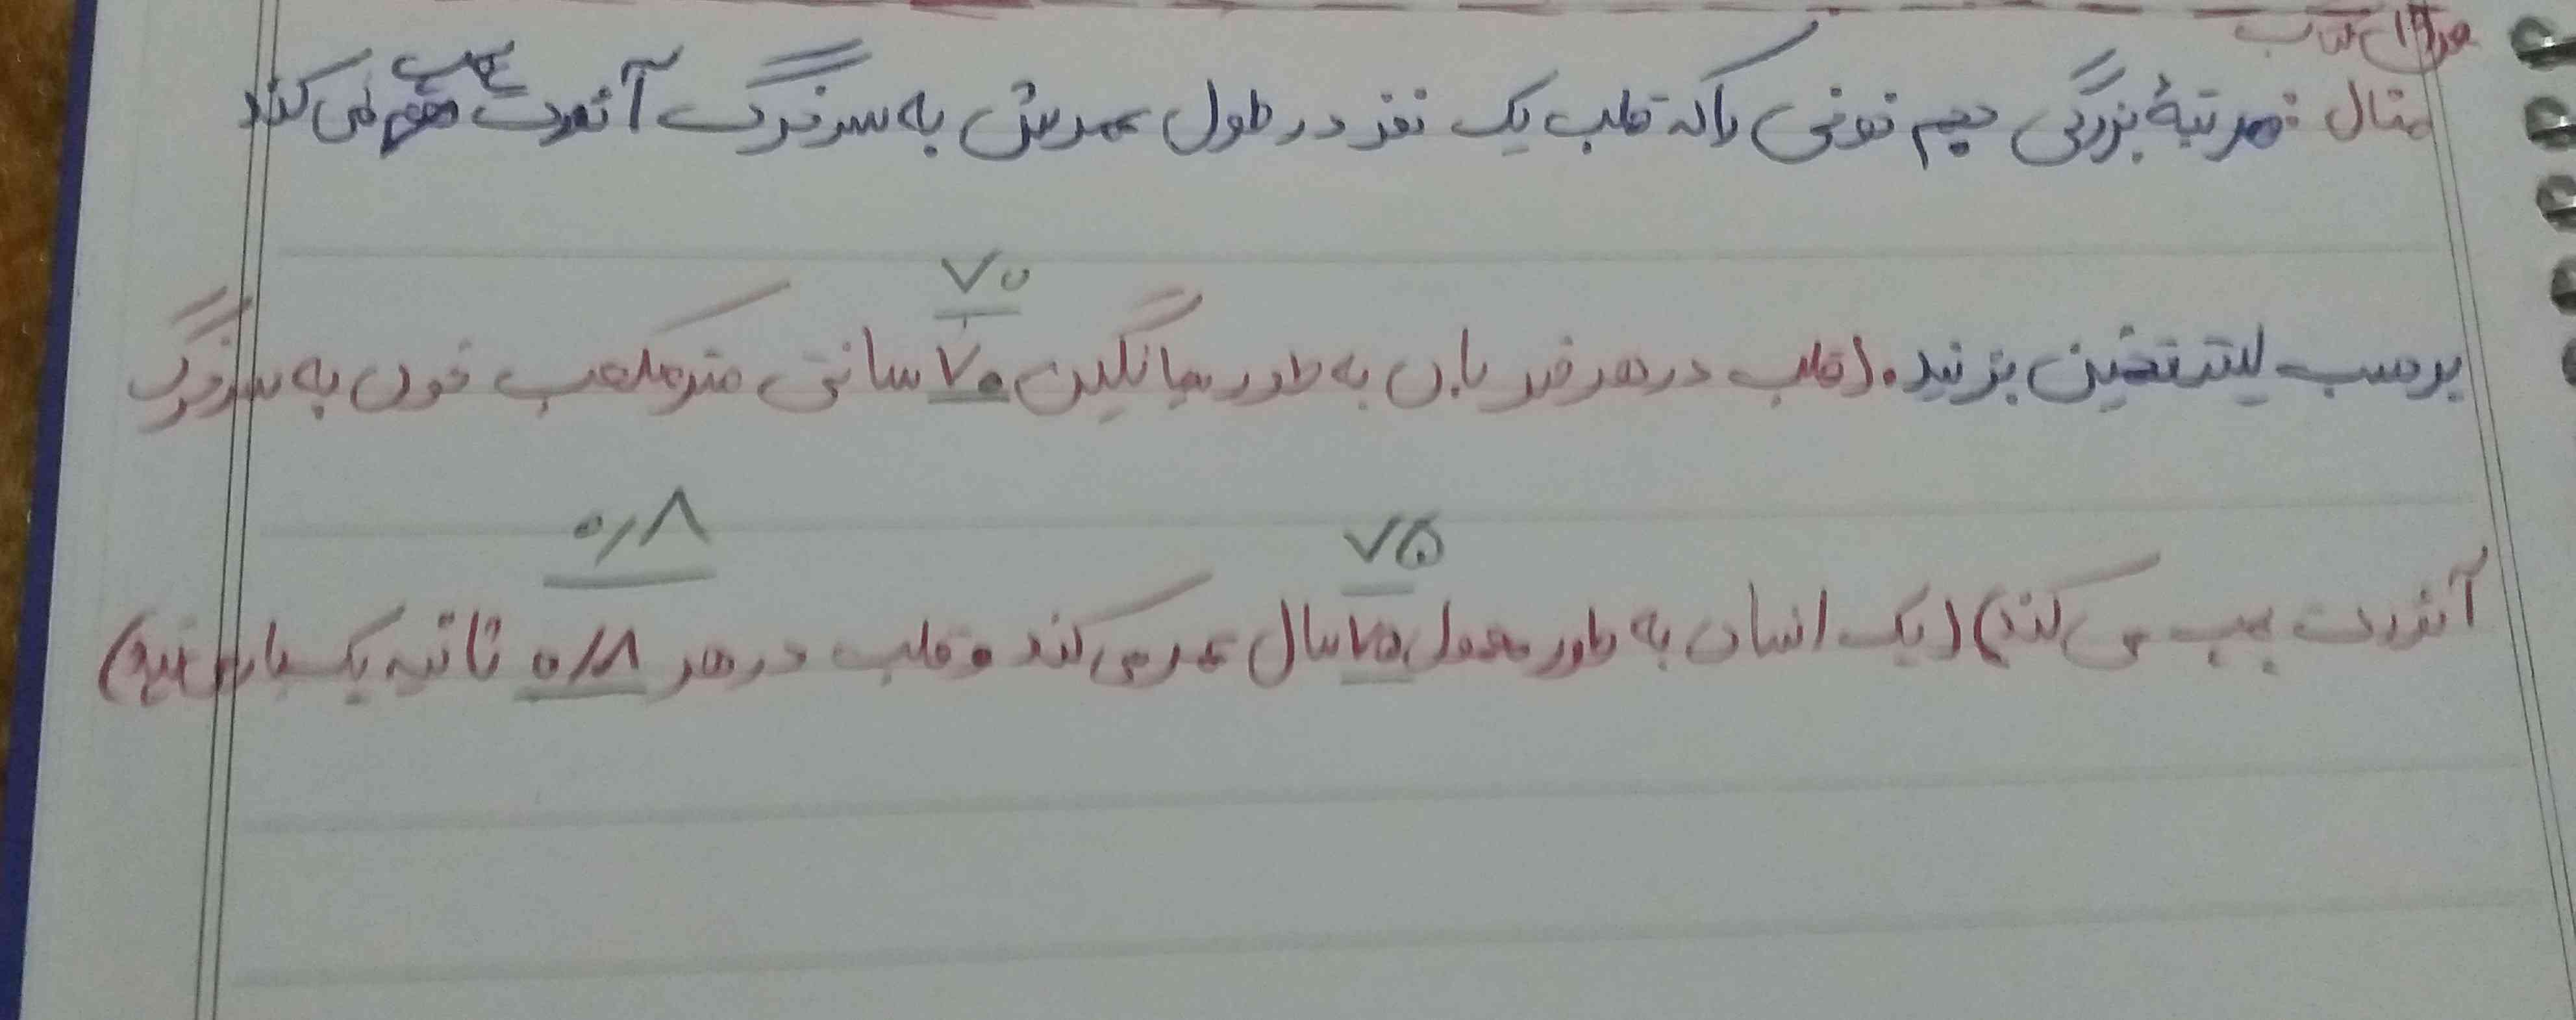 ص ۱۹ کتاب
مثال: مرتبهٔ بزرگی حجم خونی را که قلب یک نفر در طول عمرش به سرخرگ آئورت پمپ می کند
۷۰
برحسب لیتر تخمین بزنید. (قلب در هر ضربان به طور میانگین ۷۰ سانتی متر مکعب خون به سرخرگ
۷۵ ۰/۸
آئورت پمپ می کند) (یک انسان به طور معمول ۷۵ سال عمر می کند و قلب در هر ۰/۸ ثانیه یک بار می تپد)